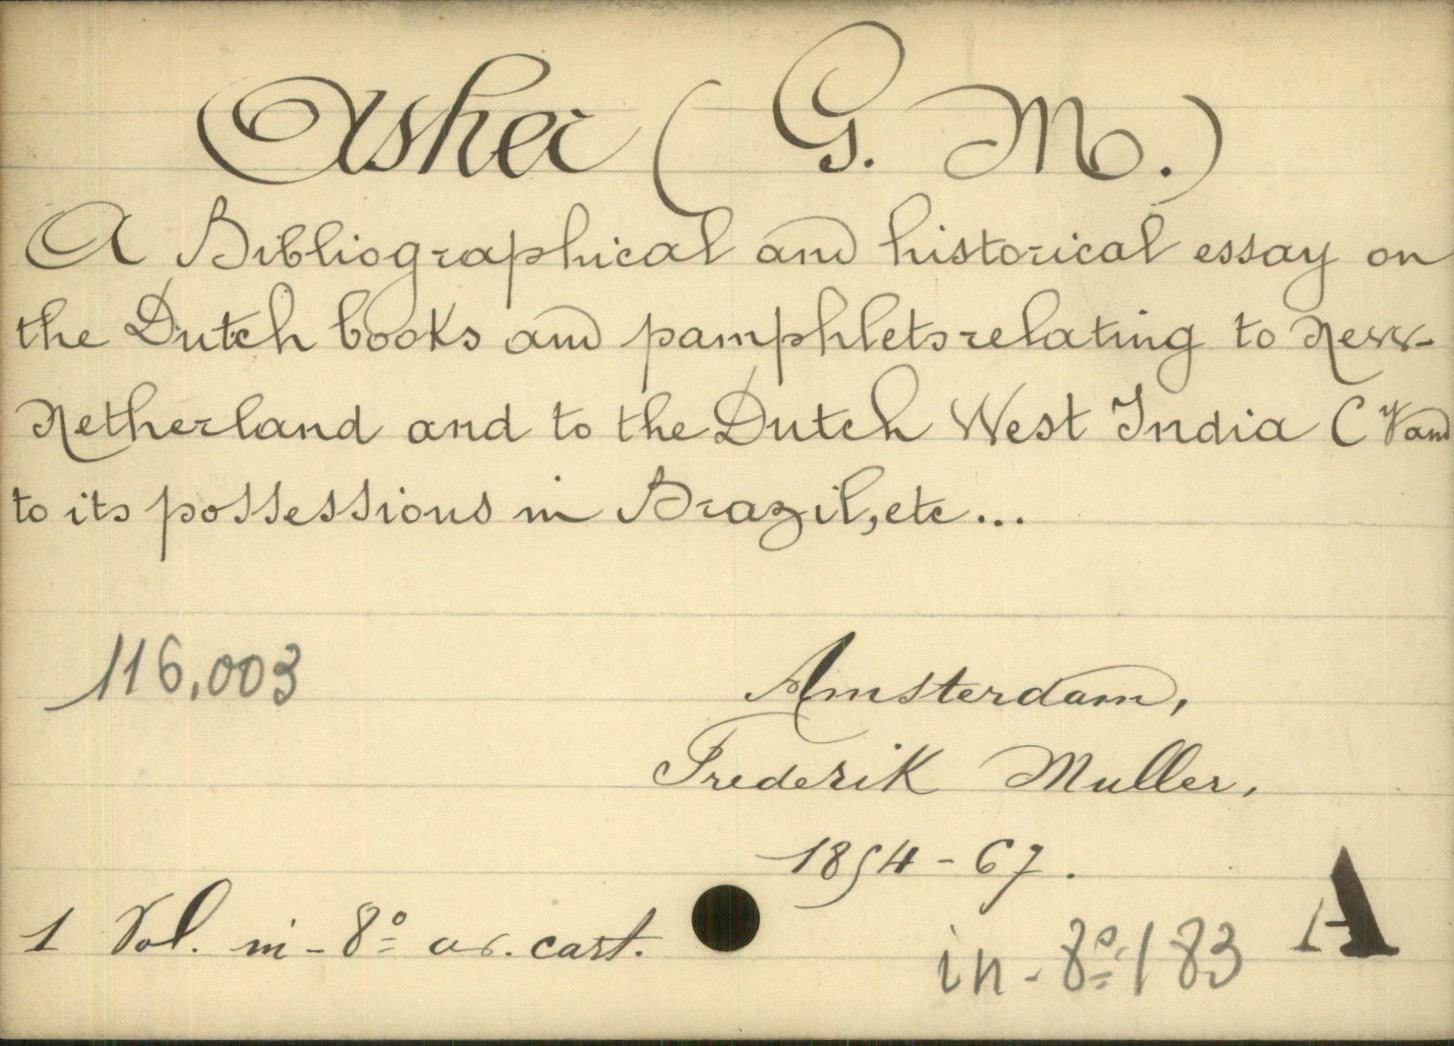 Asher (G. M.)
A Bibliographical and historical essay on
the Dutch books and pamphlets relating to New-
Netherland and to the Dutch West India Cy and
to its possessions in Brazil, etc...
116,003
Amsterdam,
Frederik Muller,
1854-67.
1 Vol. in-8º av. cart.
in-8º 183 A